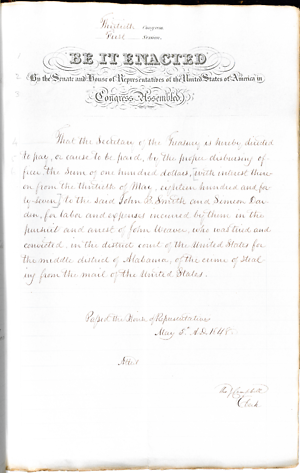 Thirtieth Congress
First Session
BE IT ENACTED
By the Senate and House of Representatives of the United States of America in
Congress Assembled
That the Secretary of the Treasury is hereby directed
to pay, or cause to be paid, by the proper disbursing of-
ficer, the sum of one hundred dollars, with interest there
on from the thirtieth of May, eighteen hundred and for
ty-seven, to the said John B. Smith and Simeon Dar
den, for labor and expense incurred by them in the
pursuit and arrest of John Weaver, who was tried and
convicted, in the district court of the United States for
the middle district of Alabama, of the crime of steal
ing from the mail of the United States.
Passed the House of Representatives
May 5th AD 1848.
Attest
Clerk